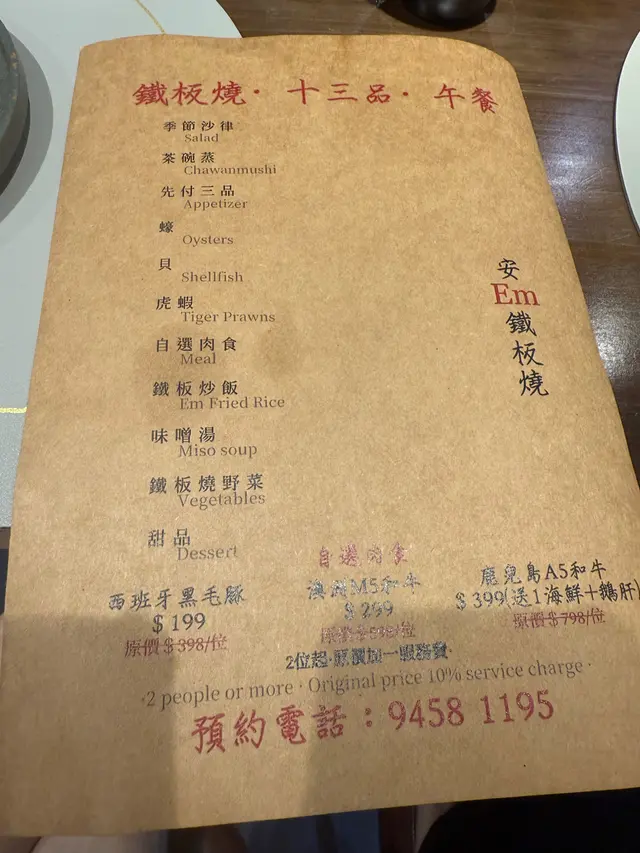 鐵板燒· 十三品· 午餐
季節沙律
Salad
茶碗蒸
Chawanmushi
先付三品
Appetizer
蠔
Oysters
貝
Shellfish
虎蝦
Tiger Prawns
自選肉食
Meal
鐵板炒飯
Em Fried Rice
味噌湯
Miso soup
鐵板燒野菜
Vegetables
甜品
Dessert
安
Em
鐵
板
燒
自選肉食
西班牙黑毛豚
$199
原價$398/位
澳洲M5和牛
$299
鹿兒島A5和牛
$399(送1海鮮+鵝肝)
原價$798/位
2位起·原價加一服務費·
·2 people or more · Original price 10% service charge ·
預約電話：9458 1195